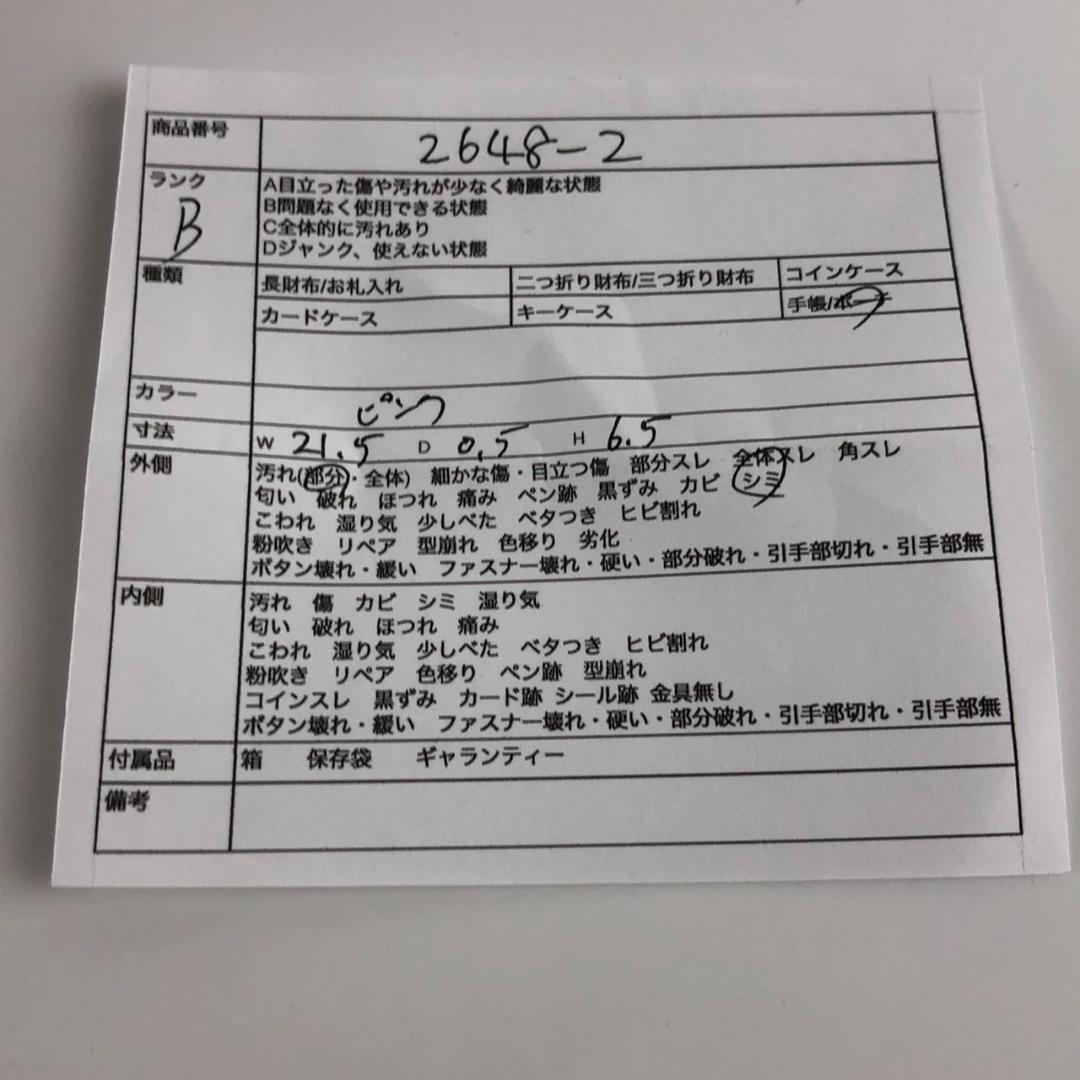 商品番号 2648-2
ランク B
A目立った傷や汚れが少なく綺麗な状態
B問題なく使用できる状態
C全体的に汚れあり
Dジャンク、使えない状態
種類
長財布/お札入れ 二つ折り財布/三つ折り財布 コインケース
カードケース キーケース 手帳/ポーチ
カラー ピンク
寸法 W 21.5 D 0.5 H 6.5
外側
汚れ(部分・全体) 細かな傷・目立つ傷 部分スレ 全体スレ 角スレ
匂い 破れ ほつれ 痛み ペン跡 黒ずみ カビ シミ
こわれ 湿り気 少しべた ベタつき ヒビ割れ
粉吹き リペア 型崩れ 色移り 劣化
ボタン壊れ・緩い ファスナー壊れ・硬い・部分破れ・引手部切れ・引手部無
内側
汚れ 傷 カビ シミ 湿り気
匂い 破れ ほつれ 痛み
こわれ 湿り気 少しべた ベタつき ヒビ割れ
粉吹き リペア 色移り ペン跡 型崩れ
コインスレ 黒ずみ カード跡 シール跡 金具無し
ボタン壊れ・緩い ファスナー壊れ・硬い・部分破れ・引手部切れ・引手部無
付属品 箱 保存袋 ギャランティー
備考